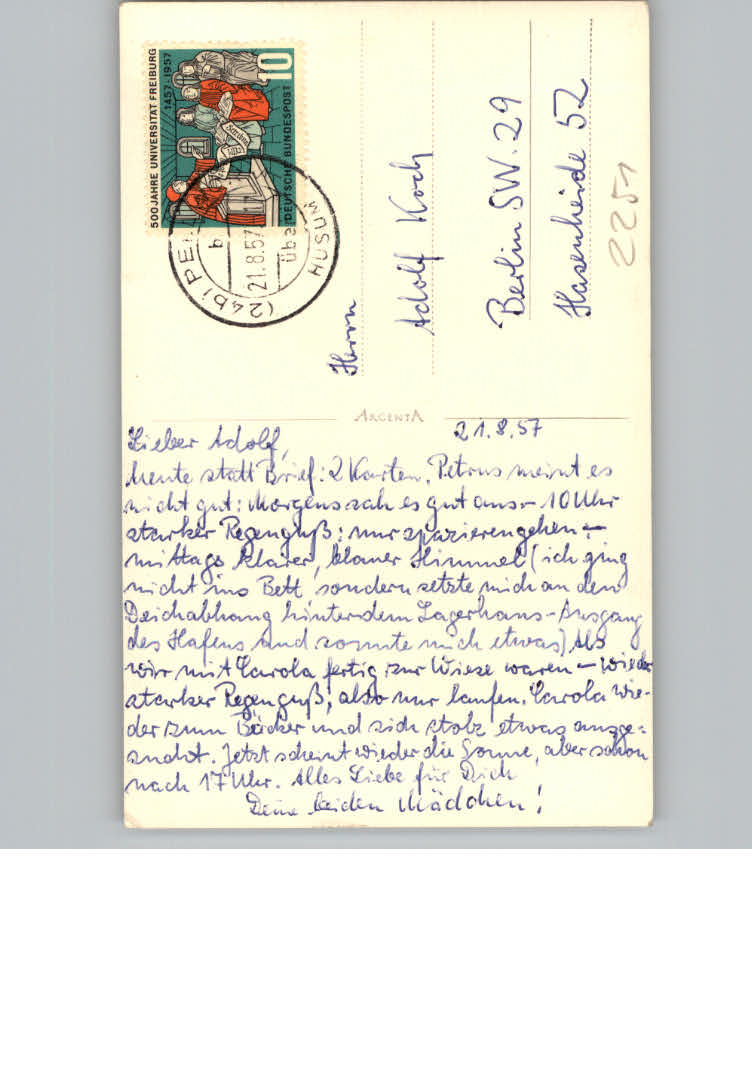 500 JAHRE UNIVERSITÄT FREIBURG
1457-1957
10
DEUTSCHE BUNDESPOST
(24b) PE
21.8.57
über
HUSUM
Herrn
Adolf Koch
Berlin SW. 29
Hasenheide 52
2251
ARGENTA
21.8.57
Lieber Adolf,
heute statt Brief: 2 Karten. Petrus meint es
nicht gut: Morgens sah es gut aus – 10 Uhr
starker Regenguß: nur spazierengehen –
mittags klarer, blauer Himmel (ich ging
nicht ins Bett sondern setzte mich an den
Deichabhang hinter dem Lagerhaus-Ausgang
des Hafens und sonnte mich etwas) Als
wir mit Carola fertig zur Wiese waren – wieder
starker Regenguß, also nur laufen. Carola wie-
der zum Bäcker und sich stolz etwas ausge=
sucht. Jetzt scheint wieder die Sonne, aber schon
nach 17 Uhr. Alles Liebe für Dich
Deine beiden Mädchen!